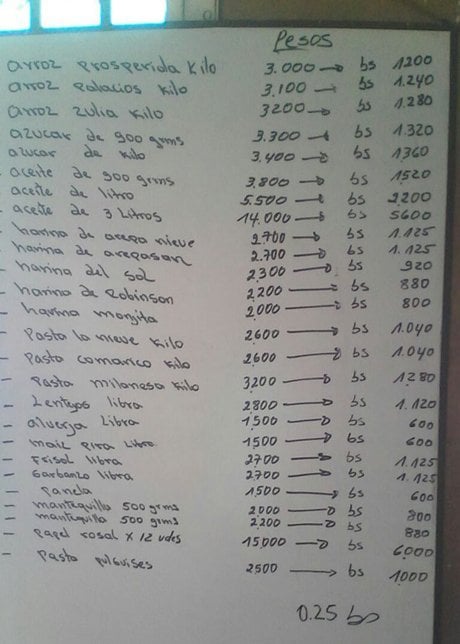 Pesos
arroz prosperida Kilo 3.000 → bs 1200
arroz palacios Kilo 3.100 → bs 1.240
arroz zulia Kilo 3200 → bs 1.280
azucar de 900 grms 3.300 → bs 1.320
azucar de Kilo 3.400 → bs 1360
- aceite de 900 grms 3.800 → bs 1520
- aceite de litro 5.500 → bs 2200
- aceite de 3 Litros 14.000 → bs 5600
- harina de arepa nieve 2.700 → bs 1.125
- harina de arepasan 2.700 → bs 1.125
- harina del sol 2,300 → bs 920
- harina de Robinson 2,200 → bs 880
- harina monzita 2,000 → bs 800
- Pasta la nieve Kilo 2,600 → bs 1.040
- Pasta comarico Kilo 2600 → bs 1.040
- Pasta milanesa Kilo 3200 → bs 1280
- Lentejos libra 2800 → bs 1.120
- alverja Libra 1500 → bs 600
- maiz pira Libra 1500 → bs 600
- Frisol libra 2700 → bs 1.125
- Garbanzo libra 2700 → bs 1.125
- Panela 1500 → bs 600
- mantequilla 500 grms 2,000 → bs 800
- mantequilla 500 grms 2,200 → bs 880
- Papel rosal x 12 udes 15,000 → bs 6,000
- Pasta 2500 → bs 1000
0.25 bs